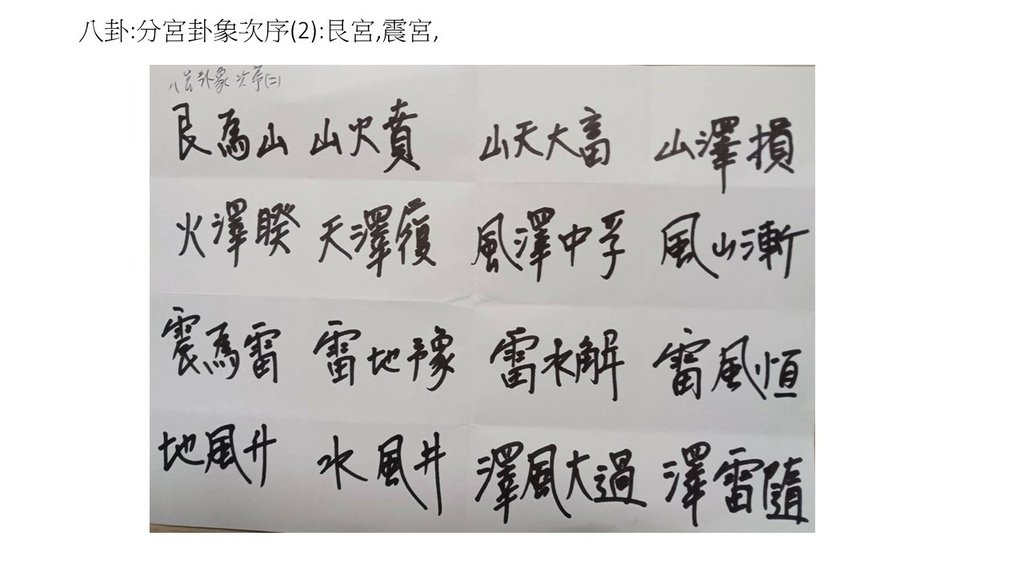 八卦:分宮卦象次序(2):艮宮,震宮,
八宮卦象次序(二)
艮為山 山火賁 山天大畜 山澤損
火澤睽 天澤履 風澤中孚 風山漸
震為雷 雷地豫 雷水解 雷風恒
地風升 水風井 澤風大過 澤雷隨